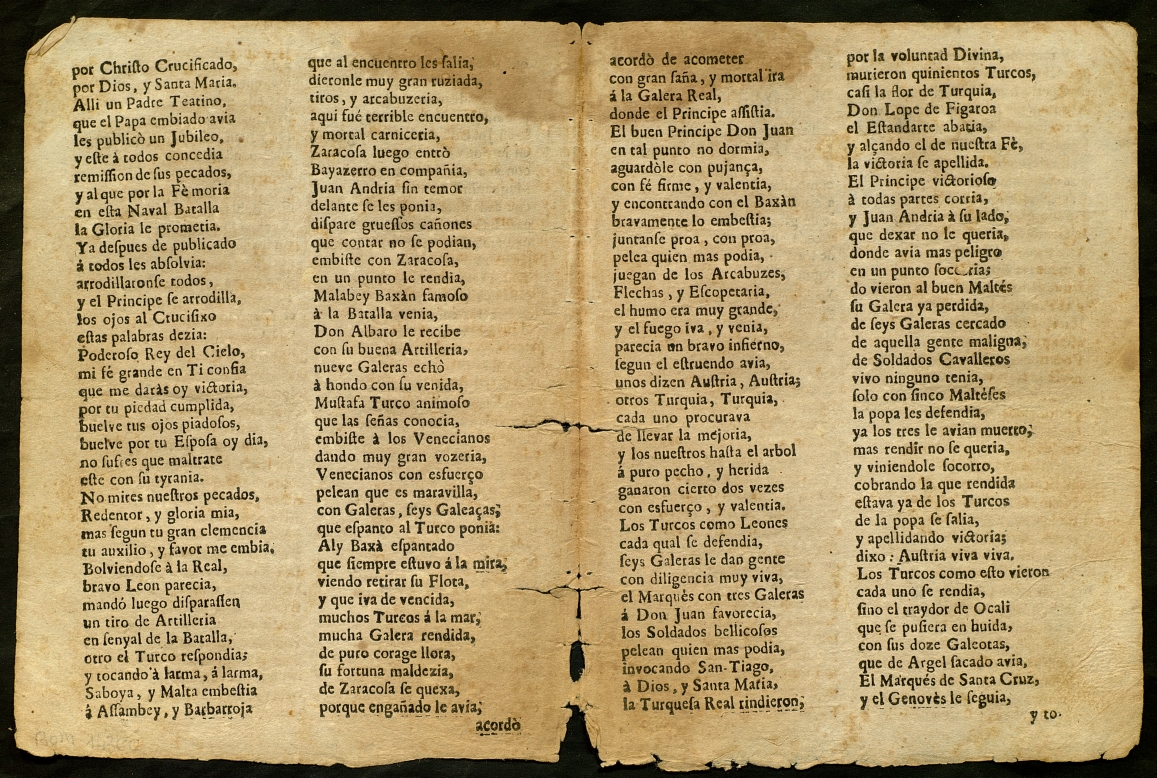 por Christo Crucificado,
por Dios, y Santa Maria.
Alli un Padre Teatino,
que el Papa embiado avia
les publicò un Jubileo,
y este à todos concedia
remission de sus pecados,
y al que por la Fè moria
en esta Naval Batalla
la Gloria le prometia.
Ya despues de publicado
à todos les absolvia:
arrodillaronse todos,
y el Principe se arrodilla,
los ojos al Crucifixo
estas palabras dezia:
Poderoso Rey del Cielo,
mi fé grande en Ti confia
que me daràs oy victoria,
por tu piedad cumplida,
buelve tus ojos piadosos,
buelve por tu Esposa oy dia,
no sufres que maltrate
este con su tyrania.
No mires nuestros pecados,
Redentor, y gloria mia,
mas segun tu gran clemencia
tu auxilio, y favor me embia.
Bolviendose à la Real,
bravo Leon parecia,
mandó luego disparassen
un tiro de Artilleria
en senyal de la Batalla,
otro el Turco respondia;
y tocando à larma, á larma,
Saboya, y Malta embestia
á Assambey, y Barbarroja
que al encuentro les salia;
dieronle muy gran ruziada,
tiros, y arcabuzeria,
aqui fué terrible encuentro,
y mortal carniceria,
Zaracosa luego entrò
Bayazerro en compañia,
Juan Andria sin temor
delante se les ponia,
dispare gruessos cañones
que contar no se podian,
embiste con Zaracosa,
en un punto le rendia,
Malabey Baxàn famoso
à la Batalla venia,
Don Albaro le recibe
con su buena Artilleria,
nueve Galeras echò
à hondo con su venida,
Mustafa Turco animoso
que las señas conocia,
embiste à los Venecianos
dando muy gran vozeria,
Venecianos con esfuerço
pelean que es maravilla,
con Galeras, seys Galeaças;
que espanto al Turco ponia:
Aly Baxà espantado
que siempre estuvo á la mira;
viendo retirar su Flota,
y que iva de vencida,
muchos Turcos á la mar,
mucha Galera rendida,
de puro corage llora,
su fortuna maldezia,
de Zaracosa se quexa,
porque engañado le avia;
acordò
acordò de acometer
con gran saña, y mortal ira
á la Galera Real,
donde el Principe assistia.
El buen Principe Don Juan
en tal punto no dormia,
aguardòle con pujança,
con fé firme, y valentia,
y encontrando con el Baxàn
bravamente lo embestia;
juntanse proa, con proa,
pelea quien mas podia,
juegan de los Arcabuzes,
Flechas, y Escopetaria,
el humo era muy grande,
y el fuego iva, y venia,
parecia un bravo infierno,
segun el estruendo avia,
unos dizen Austria, Austria;
otros Turquia, Turquia,
cada uno procurava
de llevar la mejoria,
y los nuestros hasta el arbol
á puro pecho, y herida
ganaron cierto dos vezes
con esfuerço, y valentia.
Los Turcos como Leones
cada qual se defendia,
seys Galeras le dan gente
con diligencia muy viva,
el Marquès con tres Galeras
á Don Juan favorecia,
los Soldados bellicosos
pelean quien mas podia,
invocando San-Tiago,
à Dios, y Santa Maria,
la Turquesa Real rindieron;
por la voluntad Divina,
murieron quinientos Turcos,
casi la flor de Turquia,
Don Lope de Figaroa
el Estandarte abatia,
y alçando el de nuestra Fè,
la victoria se apellida.
El Principe victorioso
à todas partes corria,
y Juan Andria à su lado,
que dexar no le queria,
donde avia mas peligro
en un punto socorria;
do vieron al buen Maltés
su Galera ya perdida,
de seys Galeras cercado
de aquella gente maligna;
de Soldados Cavalleros
vivo ninguno tenia,
solo con sinco Maltéses
la popa les defendia,
ya los tres le avian muerto;
mas rendir no se queria,
y viniendole socorro,
cobrando la que rendida
estava ya de los Turcos
de la popa se salia,
y apellidando victoria;
dixo: Austria viva viva.
Los Turcos como esto vieron
cada uno se rendia,
sino el traydor de Ocali
que se pusiera en huida,
con sus doze Galeotas,
que de Argel sacado avia,
El Marqués de Santa Cruz,
y el Genovès le seguia,
y to-